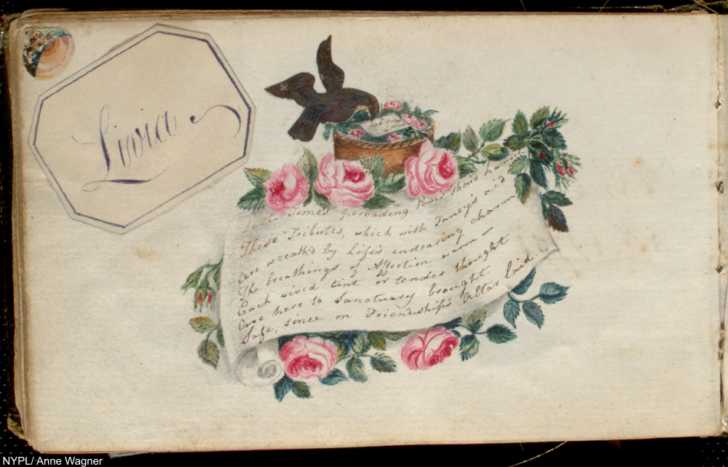 Livia
Time's Pow'r shou'd
These Tributes, which with Fancy's aid
Are wreath'd by Life's endearing charm
The breathings of Affection warm
Each vivid tint or tender thought
here to Sanctuary brought
Safe, since on Friendship's Altar laid
NYPL/ Anne Wagner